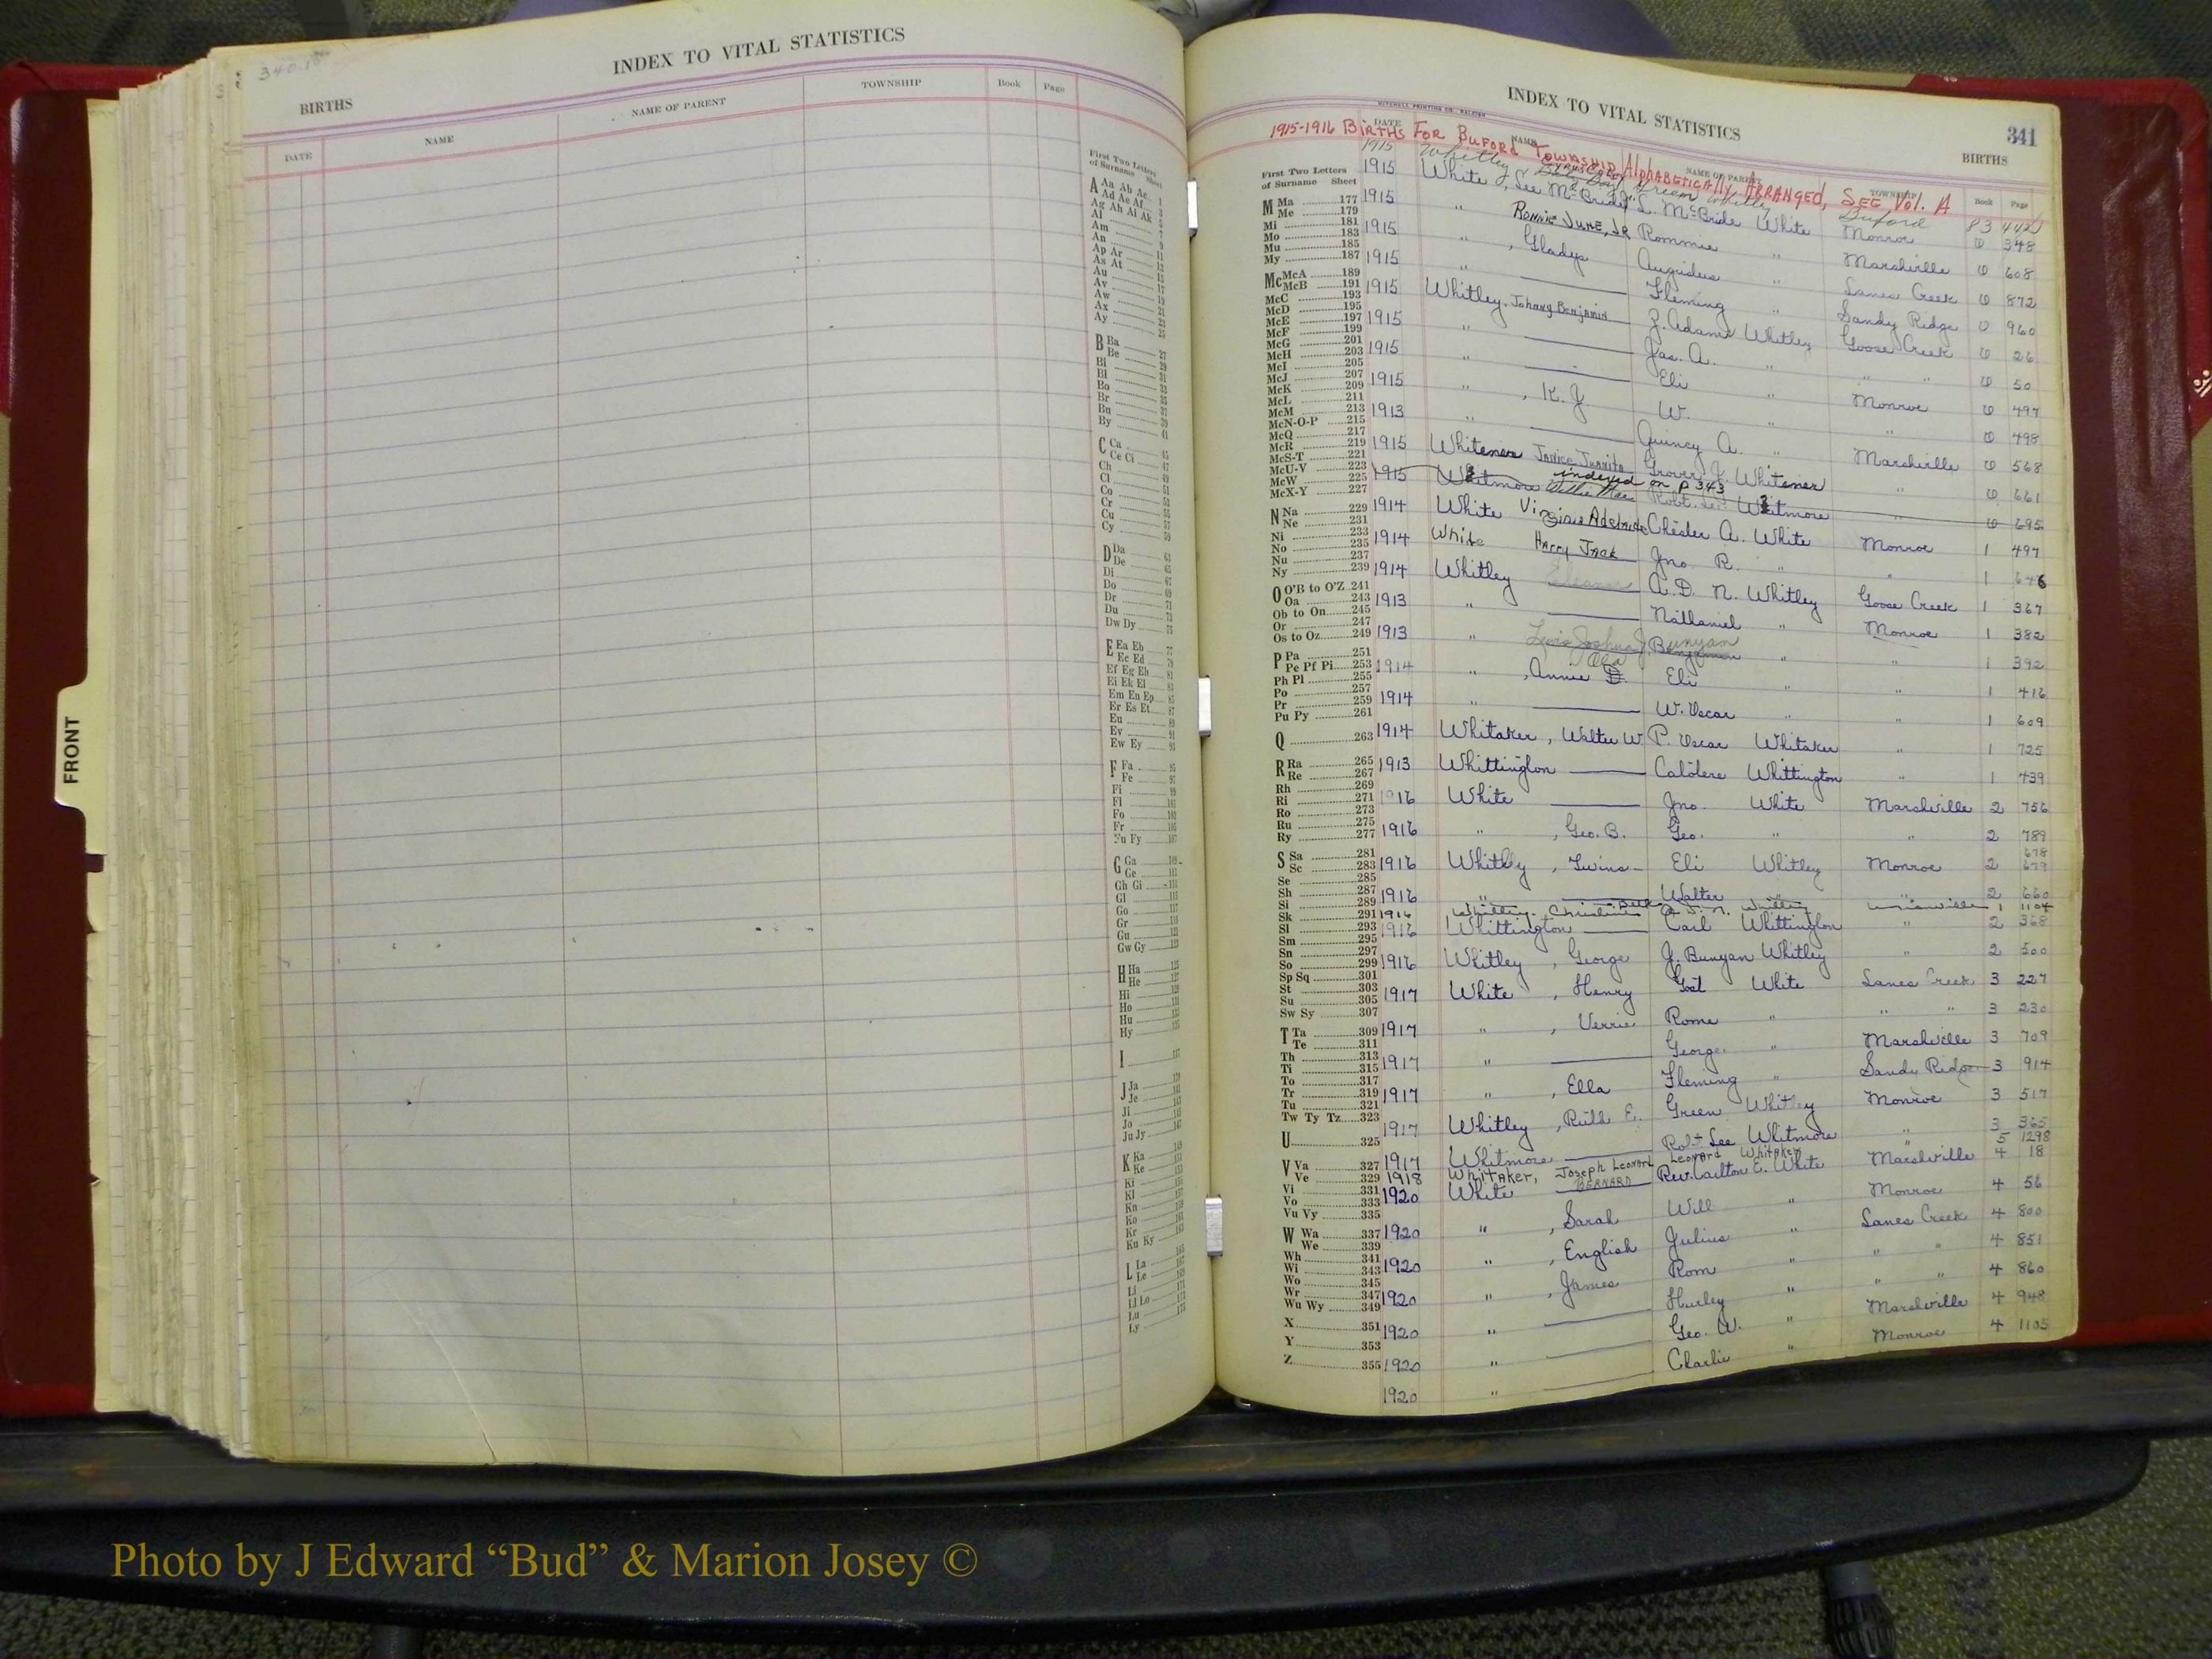 340-1
INDEX TO VITAL STATISTICS
BIRTHS
DATE NAME NAME OF PARENT TOWNSHIP Book Page
First Two Letters
of Surname Sheet
A Aa Ab Ac
Ad Ae Af
Ag Ah Ai Ak
Al
Am
An
Ap Ar
As At
Au
Av
Aw
Ax
Ay
B Ba 27
Be 29
Bi 31
Bl
Bo
Br
Bu
By 41
C Ca 45
Ce Ci 47
Ch
Cl
Co
Cr
Cu
Cy
D Da
De
Di
Do
Dr
Du
Dw Dy
E Ea Eb
Ec Ed
Ef Eg Eh
Ei Ek El
Em En Ep
Er Es Et
Eu
Ev
Ew Ey
F Fa
Fe
Fi
Fl
Fo
Fr
Fu Fy
G Ga
Ge
Gh Gi
Gl
Go
Gr
Gu
Gw Gy
H Ha
He
Hi
Ho
Hu
Hy
I
J Ja
Je
Ji
Jo
Ju Jy
K Ka
Ke
Ki
Kl
Kn
Ko
Kr
Ku Ky
L La
Le
Li
Ll Lo
Lu
Ly
FRONT
INDEX TO VITAL STATISTICS 341
MITCHELL PRINTING CO., RALEIGH
BIRTHS
1915-1916 BIRTHS FOR BUFORD TOWNSHIP Alphabetically ARRANGED, SEE Vol. A
DATE NAME NAME OF PARENT TOWNSHIP Book Page
First Two Letters
of Surname Sheet
M Ma 177
Me 179
Mi 181
Mo 183
Mu 185
My 187
Mc McA 189
McB 191
McC 193
McD 195
McE 197
McF 199
McG 201
McH 203
McI 205
McJ 207
McK 209
McL 211
McM 213
McN-O-P 215
McQ 217
McR 219
McS-T 221
McU-V 223
McW 225
McX-Y 227
N Na 229
Ne 231
Ni 233
No 235
Nu 237
Ny 239
O O'B to O'Z 241
Oa 243
Ob to On 245
Or 247
Os to Oz 249
P Pa 251
Pe Pf Pi 253
Ph Pl 255
Po 257
Pr 259
Pu Py 261
Q 263
R Ra 265
Re 267
Rh 269
Ri 271
Ro 273
Ru 275
Ry 277
S Sa 281
Sc 283
Se 285
Sh 287
Si 289
Sk 291
Sl 293
Sm 295
Sn 297
So 299
Sp Sq 301
St 303
Su 305
Sw Sy 307
T Ta 309
Te 311
Th 313
Ti 315
To 317
Tr 319
Tu 321
Tw Ty Tz 323
U 325
V Va 327
Ve 329
Vi 331
Vo 333
Vu Vy 335
W Wa 337
We 339
Wh 341
Wi 343
Wo 345
Wr 347
Wu Wy 349
X 351
Y 353
Z 355
1915 Whitley Green Whitley Buford 83 442
1915 White, See McBride, J. L. McBride White Monroe 0 348
1915 " Ronnie June, Jr Rommie " Marshville 0 608
1915 " , Gladys Augustus " Lanes Creek 0 872
1915 " Fleming " Sandy Ridge 0 960
1915 Whitley, Johnny Benjamin Z. Adams Whitley Goose Creek 0 26
1915 " Jas. A. " " " 0 50
1915 " Eli " Monroe 0 497
1915 " , K. J. W. " " 0 498
1913 " Quincy A. " Marshville 0 568
1915 Whitener Janice Juanita Grover J. Whitener " 0 661
indexed on p 343
1915 Whitmore Willie Mae Robt. Lee Whitmore " 0 695
1914 White Virginia Adelaide Chesler A. White Monroe 1 497
1914 White Harry Jack Jno. R. " " 1 646
1914 Whitley A. D. N. Whitley Goose Creek 1 367
1913 " Nathaniel " Monroe 1 382
1913 " Lewis Joshua J. Bunyan " " 1 392
1914 " , Annie Ola Eli " " 1 416
1914 " W. Oscar " " 1 609
1914 Whitaker, Walter W. P. Oscar Whitaker " 1 725
1913 Whittington Whittington " 1 439
1916 White Jno. White Marshville 2 756
1916 " , Geo. B. Geo. " " 2 789
1916 Whitley, Twins Eli Whitley Monroe 2 678 679
1916 " Walter " " 2 660
1916 Whitley, Christine Beth A. J. N. Whitley Unionville 1 1104
1916 Whittington Carl Whittington " 2 368
1916 Whitley, George J. Bunyan Whitley " 2 500
1917 White, Henry White Lanes Creek 3 227
1917 " , Verrie Rome " " " 3 230
1917 " George " Marshville 3 709
1917 " , Ella Fleming " Sandy Ridge 3 914
1917 Whitley, Ruth E. Green Whitley Monroe 3 517
1917 Whitmore Robt Lee Whitmore " 3 365
1918 Whitaker, Joseph Leonard Leonard Whitaker " 5 1298
1920 White Bernard Rev. Carlton E. White Marshville 4 18
1920 " , Sarah Will " Monroe 4 56
1920 " , English Julius " Lanes Creek 4 800
1920 " , James Rom " " " 4 851
1920 " Hurley " " " 4 860
1920 " Geo. W. " Marshville 4 948
1920 " Charlie " Monroe 4 1105
Photo by J Edward “Bud” & Marion Josey ©